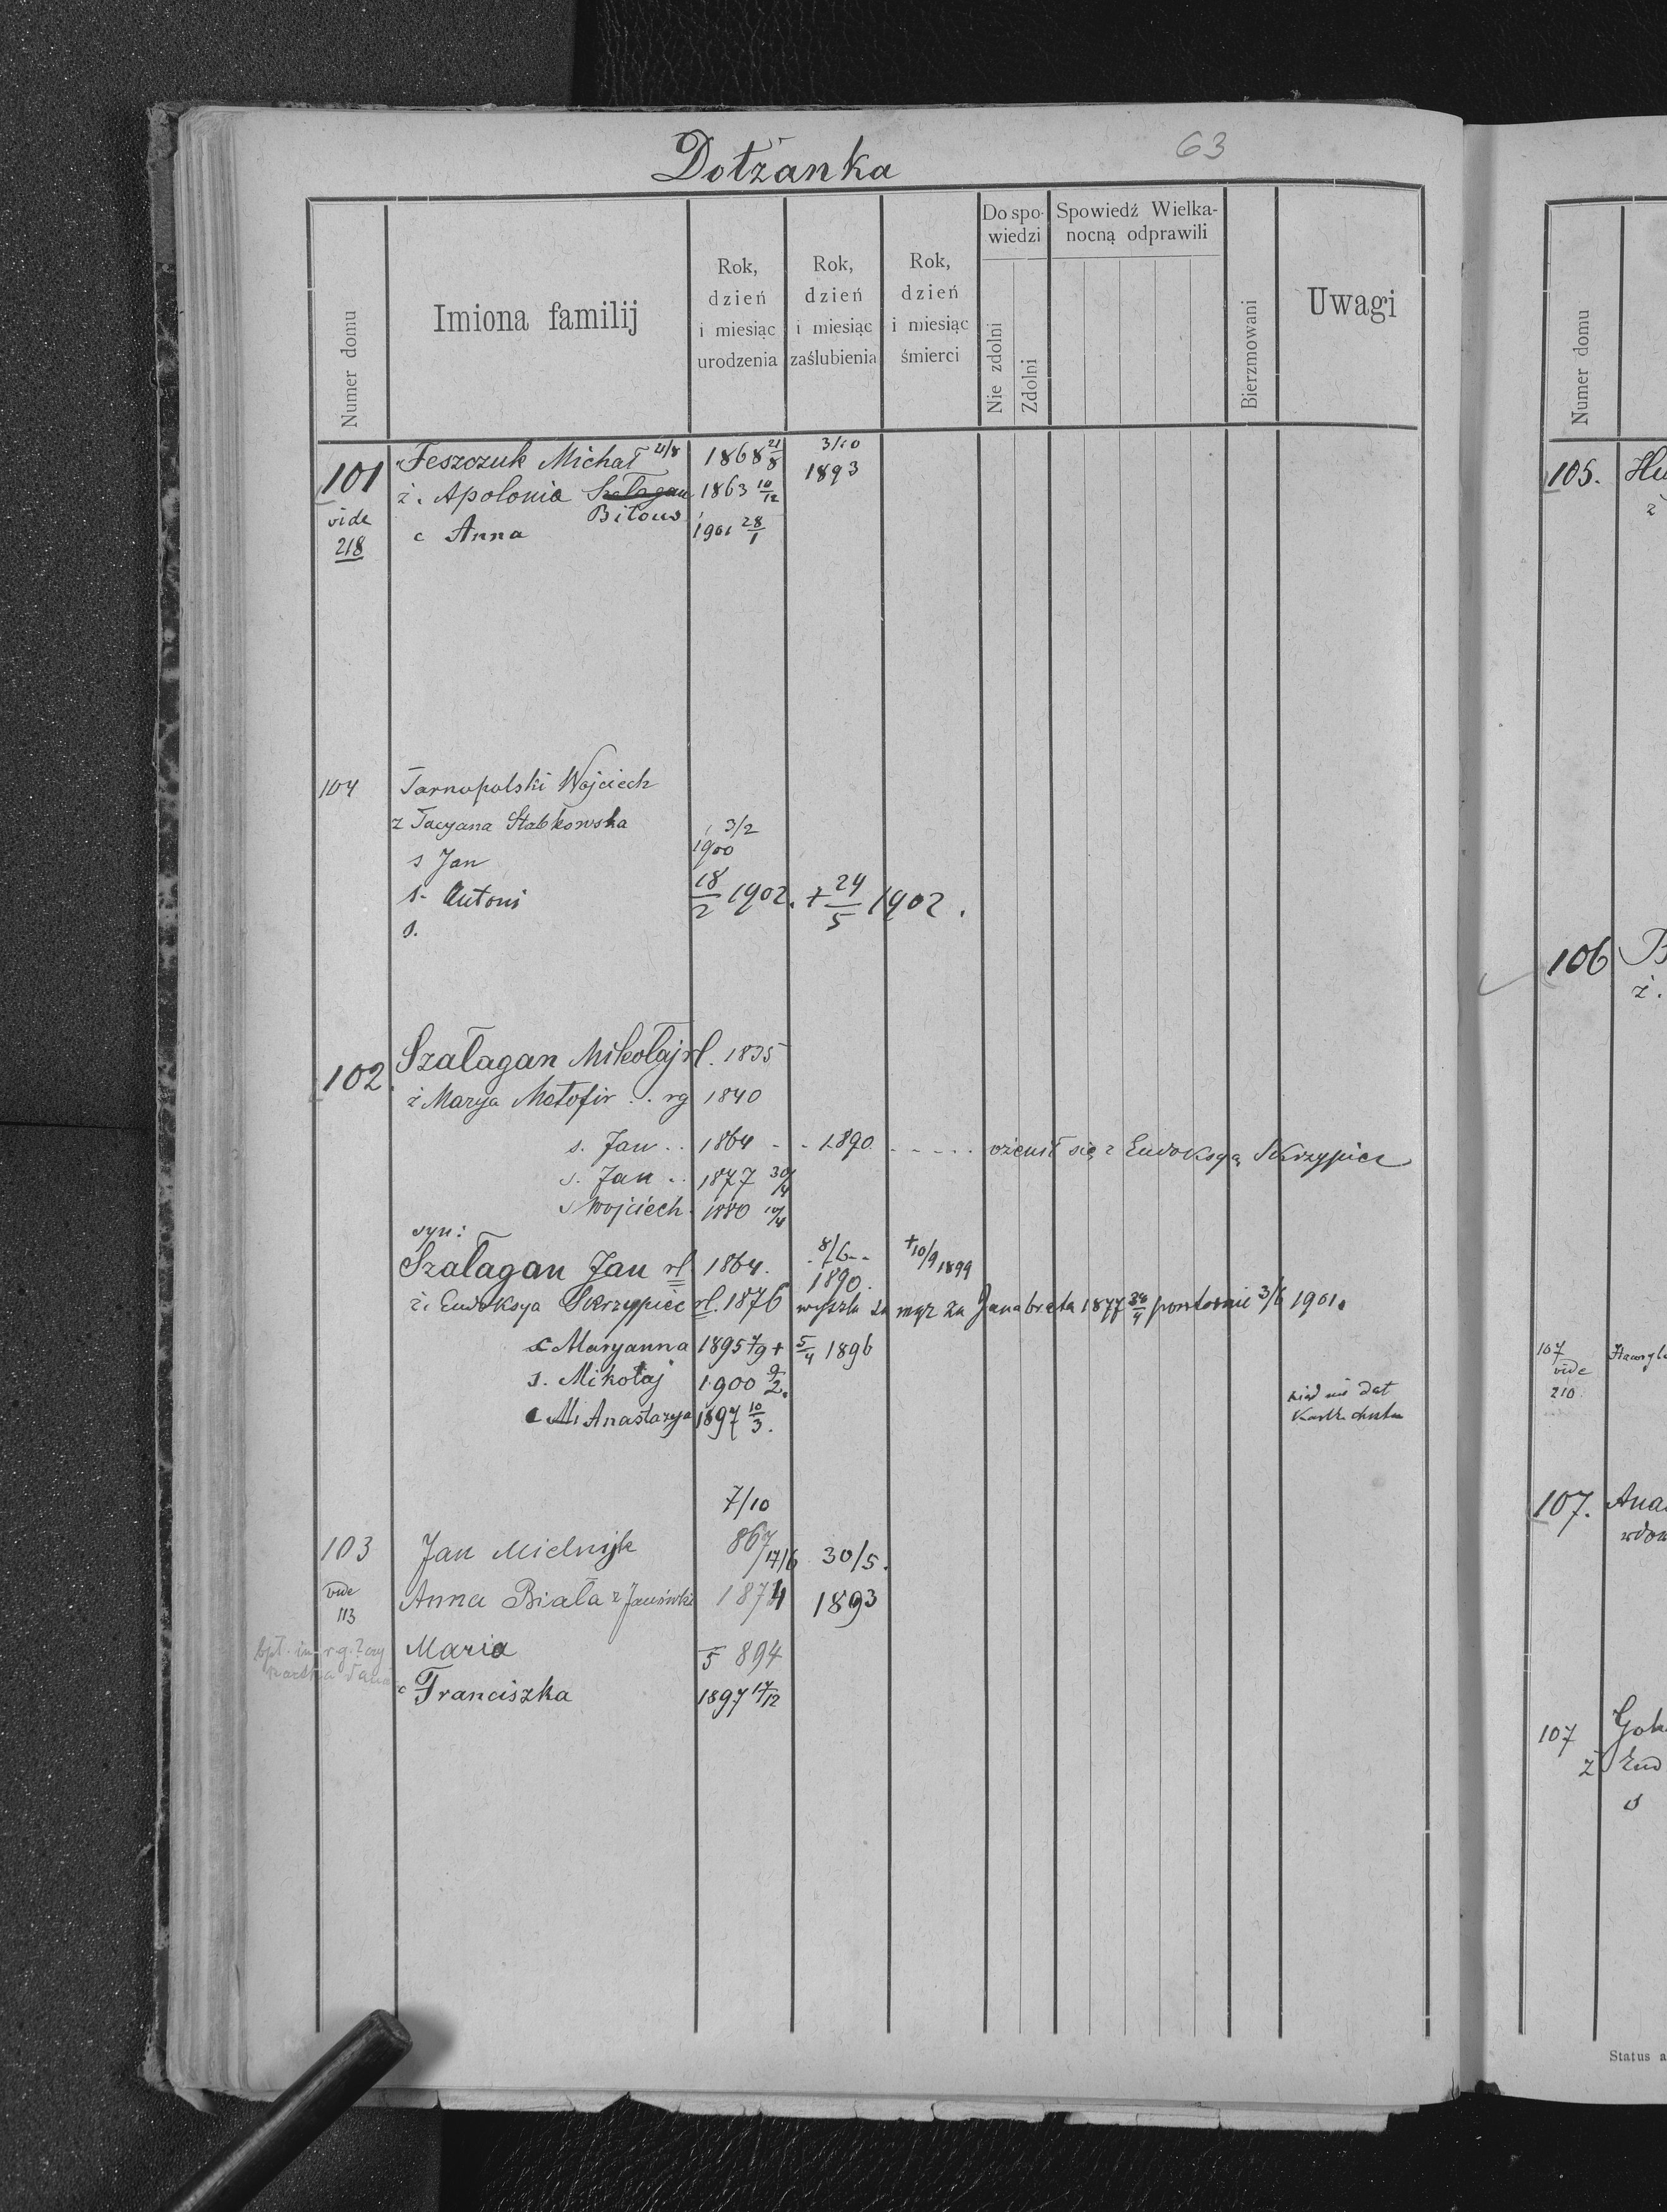 Dołżanka
63
Numer domu
Imiona familij
Rok, dzień i miesiąc urodzenia
Rok, dzień i miesiąc zaślubienia
Rok, dzień i miesiąc śmierci
Do spowiedzi
Nie zdolni
Zdolni
Spowiedź Wielkanocną odprawili
Bierzmowani
Uwagi
101 Feszczuk Michał 21/8 1868 21/8 3/10 1893
ż. Apolonia Szałagan 1863 10/12
vide Biłous
218 c Anna 1901 28/1
104 Tarnopolski Wojciech
ż Tacyana Słabkowska
s Jan 3/2 1900
s. Antoni 18/2 1902. + 24/5 1902.
s.
102. Szałagan Mikołaj rl. 1835
ż Marya Matofir .. rg 1840
s. Jan .. 1864 - - 1890 - - - - - ożenił się z Eudoksyą Skrzypiec
s. Jan .. 1877 30/4
s Wojciech. 1880 10/4
syn:
Szałagan Jan rl 1864. 8/6-- 1890. + 10/9 1899
ż. Eudoksya Skrzypiec rl. 1876 wyszła za mąż za Jana brata 1877 30/4 powtórnie 3/6 1901.
c Maryanna 1895 7/9 + 5/4 1896
s. Mikołaj 1900 9/2.
c M Anastazya 1897 10/3.
nie dał
103 Jan Mielnyk 7/10 867
vide 113 Anna Biała z Janówki 17/6 1874 30/5. 1893
Maria /5 894
c Franciszka 1897 17/12
Numer domu
105. Hu
ż
106 B
ż.
107 vide 210
107. Ana
wdow
107 Goł
ż Eud
s
Status a